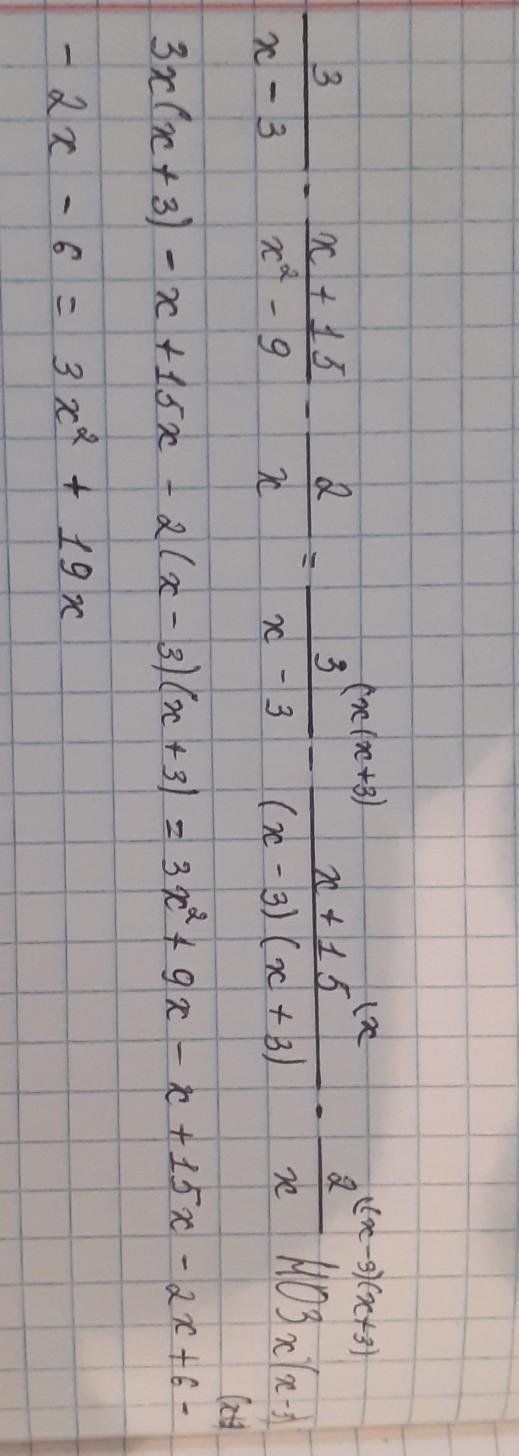 3/(x - 3) - (x + 15)/(x² - 9) - 2/x = 3^(x(x+3)/(x - 3) - x + 15^(x/((x - 3)(x + 3)) - 2^((x-3)(x+3)/x НОЗ x(x-3)(x+3)
3x(x+3) - x + 15x - 2(x - 3)(x + 3) = 3x² + 9x - x + 15x - 2x + 6 -
- 2x - 6 = 3x² + 19x